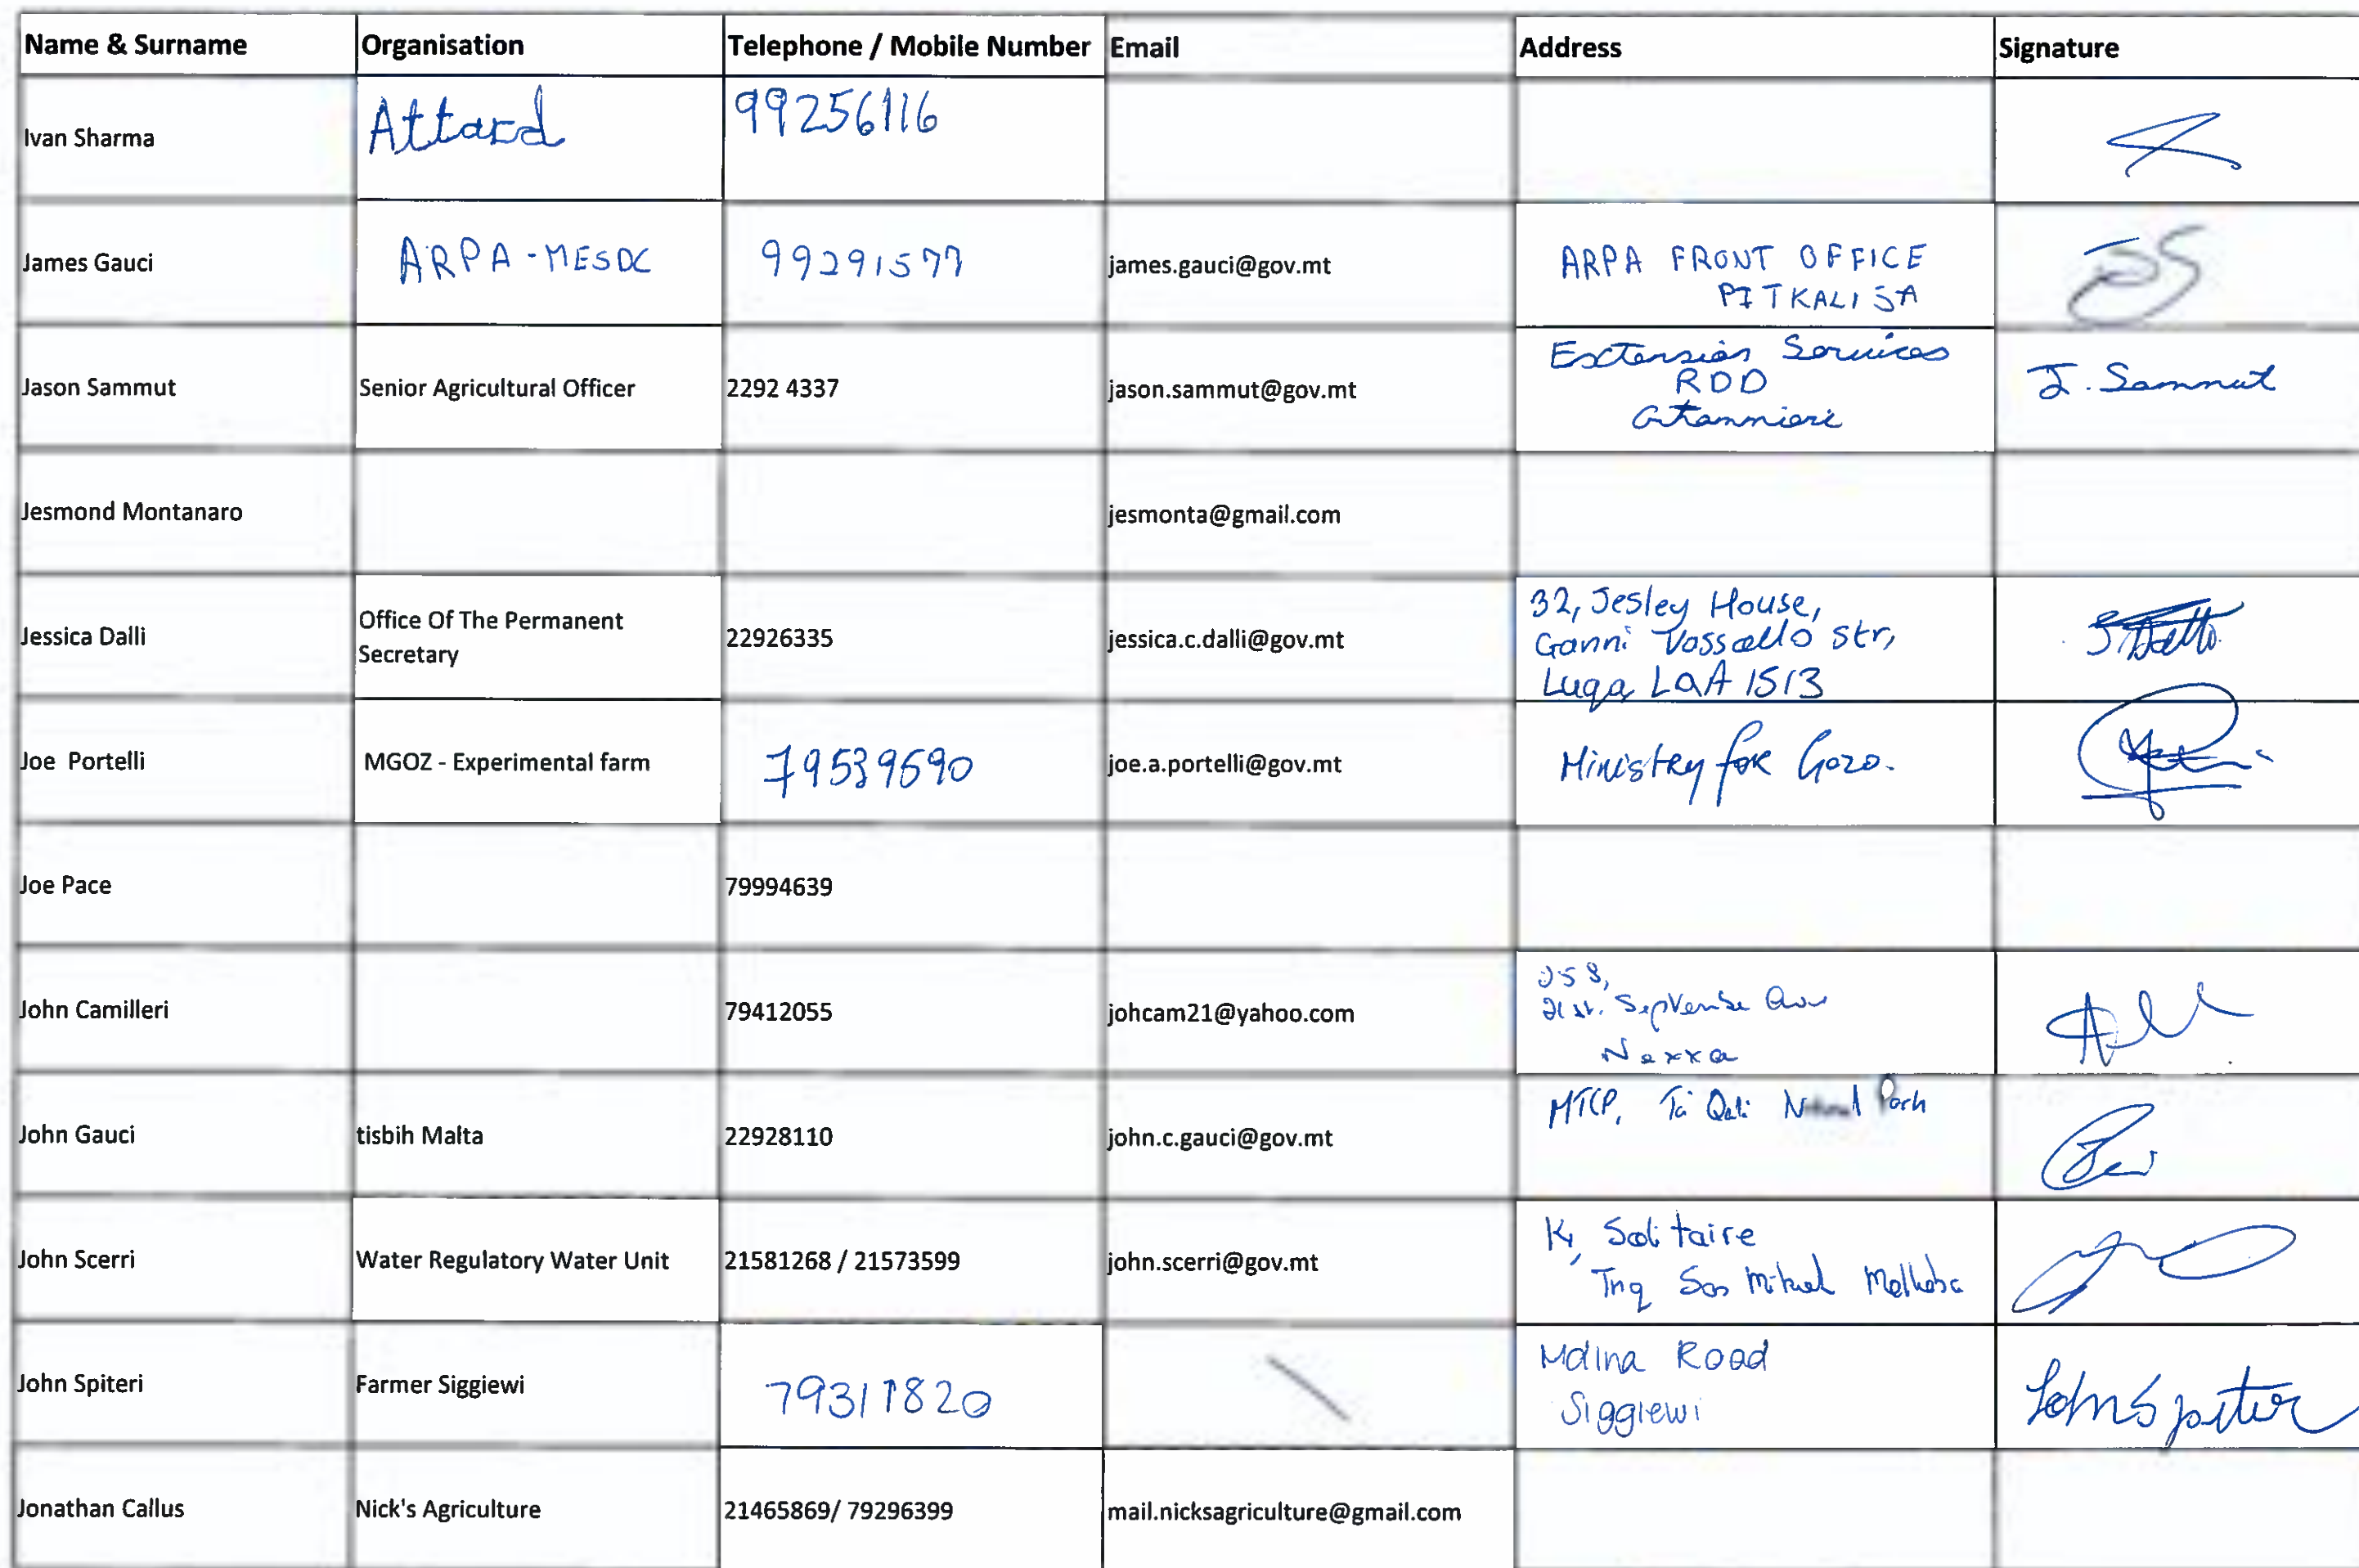 Name & Surname Organisation Telephone / Mobile Number Email Address Signature
Ivan Sharma Attard 99256116
James Gauci ARPA-MESDC 99291577 james.gauci@gov.mt ARPA FRONT OFFICE
PITKALISA
Jason Sammut Senior Agricultural Officer 2292 4337 jason.sammut@gov.mt Extension Services
RDD
J. Sammut
Jesmond Montanaro jesmonta@gmail.com
Jessica Dalli Office Of The Permanent
Secretary 22926335 jessica.c.dalli@gov.mt 32, Jesley House,
Ganni Vassallo str,
Luqa LQA 1513
Joe Portelli MGOZ - Experimental farm 79539690 joe.a.portelli@gov.mt Ministry for Gozo.
Joe Pace 79994639
John Camilleri 79412055 johcam21@yahoo.com
21st. September Ave
Naxxa
John Gauci tisbih Malta 22928110 john.c.gauci@gov.mt MTCP, Ta Qali National Park
John Scerri Water Regulatory Water Unit 21581268 / 21573599 john.scerri@gov.mt Solitaire
Triq San Mikiel
John Spiteri Farmer Siggiewi 79311820 Mdina Road
Siggiewi
John Spiteri
Jonathan Callus Nick's Agriculture 21465869/ 79296399 mail.nicksagriculture@gmail.com